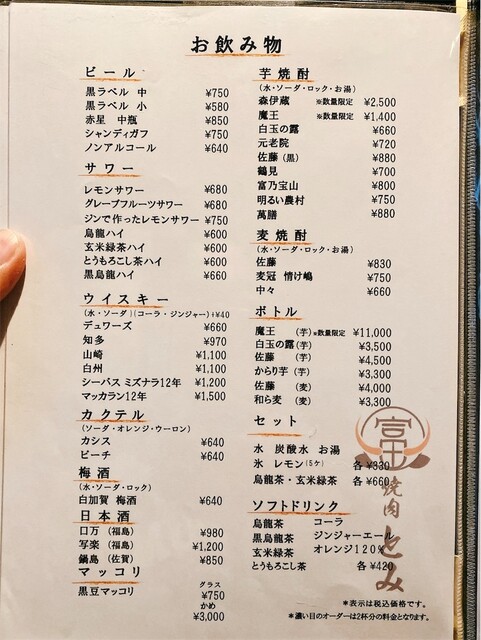 お飲み物
ビール
黒ラベル 中 ¥750
黒ラベル 小 ¥580
赤星 中瓶 ¥850
シャンディガフ ¥750
ノンアルコール ¥640
サワー
レモンサワー ¥680
グレープフルーツサワー ¥680
ジンで作ったレモンサワー ¥750
烏龍ハイ ¥600
玄米緑茶ハイ ¥600
とうもろこし茶ハイ ¥600
黒烏龍ハイ ¥660
ウイスキー
(水・ソーダ)(コーラ・ジンジャー)+¥40
デュワーズ ¥660
知多 ¥970
山崎 ¥1,100
白州 ¥1,100
シーバス ミズナラ12年 ¥1,200
マッカラン12年 ¥1,500
カクテル
(ソーダ・オレンジ・ウーロン)
カシス ¥640
ピーチ ¥640
梅酒
(水・ソーダ・ロック)
白加賀 梅酒 ¥640
日本酒
口万 (福島) ¥980
写楽 (福島) ¥1,200
鍋島 (佐賀) ¥850
マッコリ
黒豆マッコリ グラス ¥750
かめ ¥3,000
芋焼酎
(水・ソーダ・ロック・お湯)
森伊蔵 ※数量限定 ¥2,500
魔王 ※数量限定 ¥1,400
白玉の露 ¥660
元老院 ¥720
佐藤(黒) ¥880
鶴見 ¥700
富乃宝山 ¥800
明るい農村 ¥750
萬膳 ¥880
麦焼酎
(水・ソーダ・ロック・お湯)
佐藤 ¥830
麦冠 情け嶋 ¥750
中々 ¥660
ボトル
魔王 (芋)※数量限定 ¥11,000
白玉の露 (芋) ¥3,500
佐藤 (芋) ¥4,500
からり芋 (芋) ¥3,300
佐藤 (麦) ¥4,000
和ら麦 (麦) ¥3,300
セット
水 炭酸水 お湯
氷 レモン(5ケ) 各 ¥330
烏龍茶・玄米緑茶 各 ¥660
ソフトドリンク
烏龍茶 コーラ
黒烏龍茶 ジンジャーエール
玄米緑茶 オレンジ120%
とうもろこし茶 各 ¥420
富
焼肉 とみ
*表示は税込価格です。
*濃い目のオーダーは2杯分の料金となります。